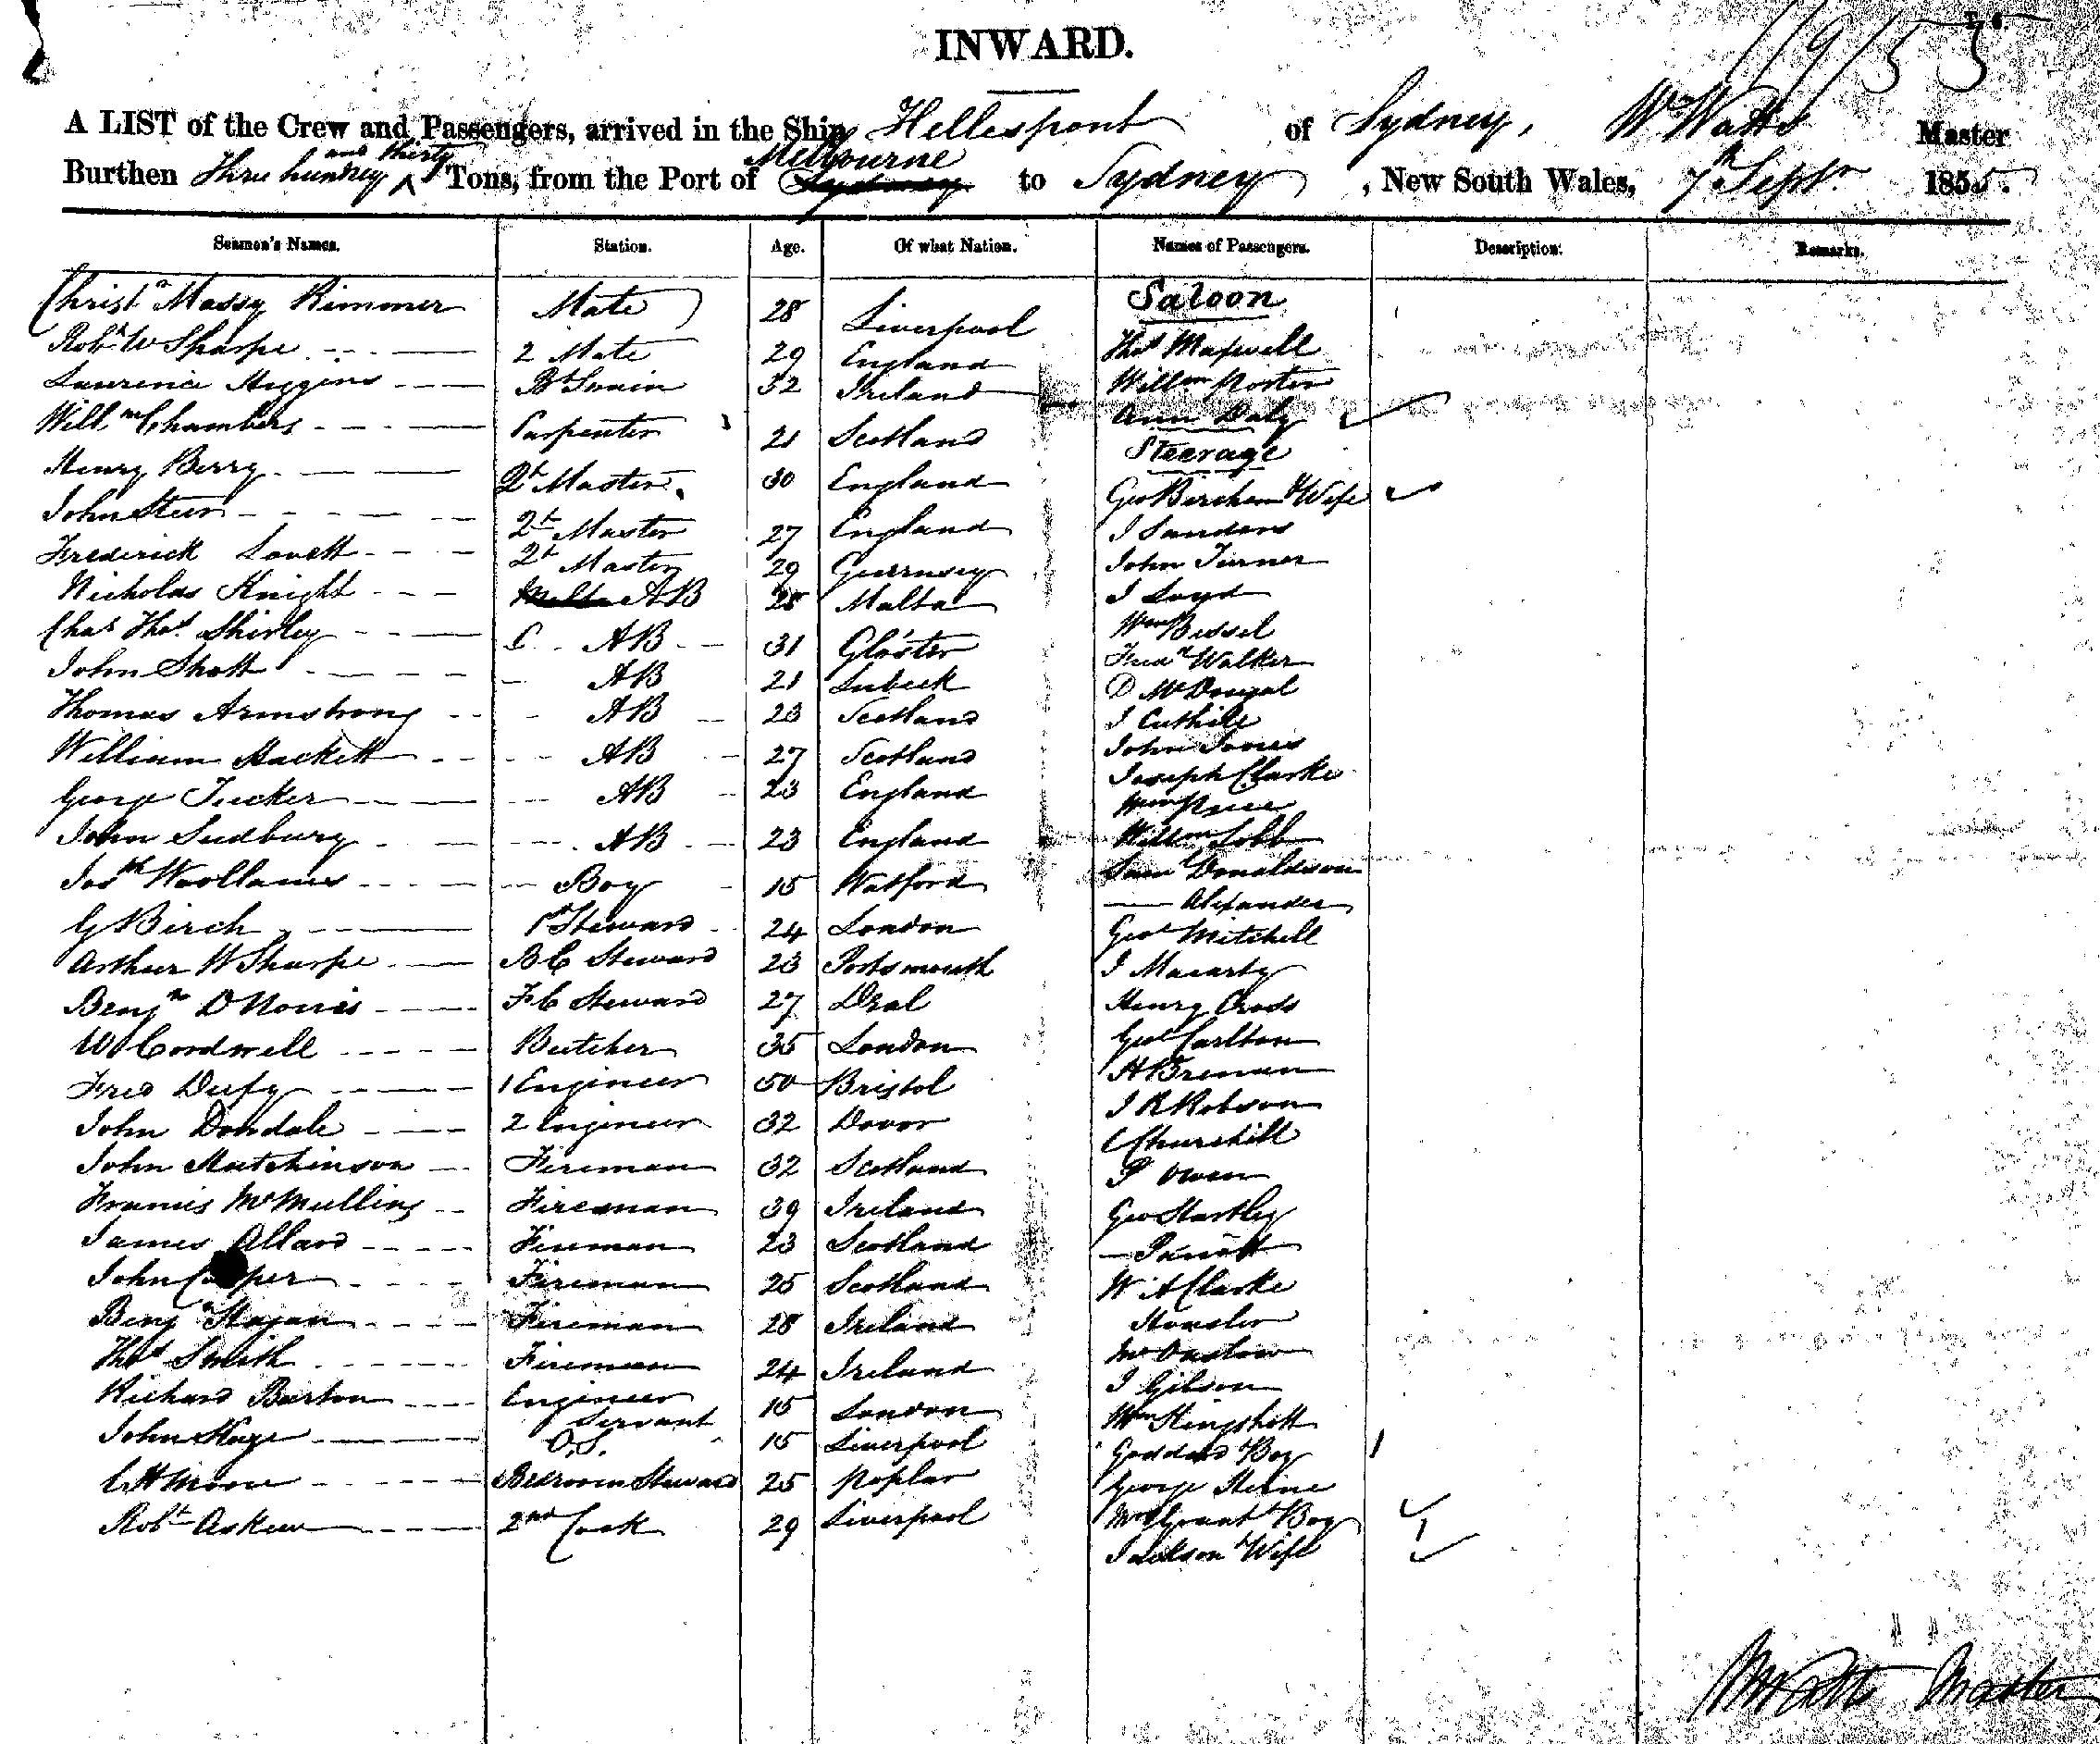 INWARD.
A LIST of the Crew and Passengers, arrived in the Ship Hellespont of Sydney, Wm Watts Master
Burthen Three hundred and thirty Tons, from the Port of Melbourne to Sydney, New South Wales, 7th Septr 1855.
Seamen's Names. Station. Age. Of what Nation. Names of Passengers. Description. Remarks.
Saloon
Christn Massy Rimmer Mate 28 Liverpool
Robt W Sharpe 2 Mate 29 England Thos Maxwell
Laurence Higgins Bt Swain 32 Ireland Willm Porter
Willm Chambers Carpenter 21 Scotland Ann Daly
Steerage
Henry Berry Qt Master 30 England Geo Bircham & Wife
John Steer Qt Master 27 England J Sanders
Frederick Lovett Qt Master 29 Guernsey John Turner
Nicholas Knight AB 28 Malta J Loyd
Chas Thos Shirley AB 31 Gloster Wm Bissel
John Shott AB 21 Lubeck Fredk Walker
Thomas Armstrong AB 23 Scotland D McDougal
J Cuthill
William Hackett AB 27 Scotland John Jones
George Tucker AB 23 England Joseph Clarke
Wm Price
John Sudbury AB 23 England Willm Lobb
Josh Woollams Boy 15 Watford Saml Donaldson
Alexander
G Birch 1st Steward 24 London Geo Mitchell
Arthur W Sharpe BC Steward 23 Portsmouth J Macarty
Benjn D Norris FC Steward 27 Deal Henry Cross
W Cordwell Butcher 35 London Geo Carlton
Fred Dufy 1 Engineer 50 Bristol H Brennan
John Dondale 2 Engineer 32 Dover J R Robson
John Hutchinson Fireman 32 Scotland C Churchill
Francis McMullins Fireman 39 Ireland P Owen
Geo Hartley
James Allard Fireman 23 Scotland Parrott
John Cooper Fireman 25 Scotland W A Clarke
Benjn Hagan Fireman 28 Ireland
Thos Smith Fireman 24 Ireland Mr Onslow
Richard Burton Engineer Servant 15 London J Gibson
Wm Kingshott
John Hage O.S. 15 Liverpool Goddard & Boy
C H Moore Bedroom Steward 25 Poplar George Heine
Robt Askew 2nd Cook 29 Liverpool Mrs Grant & Boy
Jackson & Wife
W Watts Master